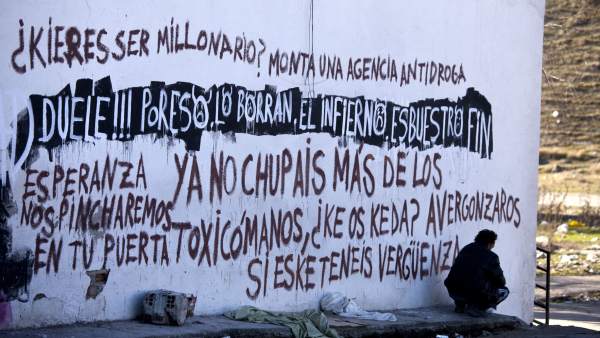 ¿KIERES SER MILLONARIO? MONTA UNA AGENCIA ANTIDROGA
¡DUELE!!! POR ESO LO BORRAN, EL INFIERNO ES BUESTRO FIN
ESPERANZA
NOS PINCHAREMOS
EN TU PUERTA
YA NO CHUPAIS MÁS DE LOS
TOXICÓMANOS, ¿KE OS KEDA? AVERGONZAROS
SI ES KE TENEIS VERGÜENZA